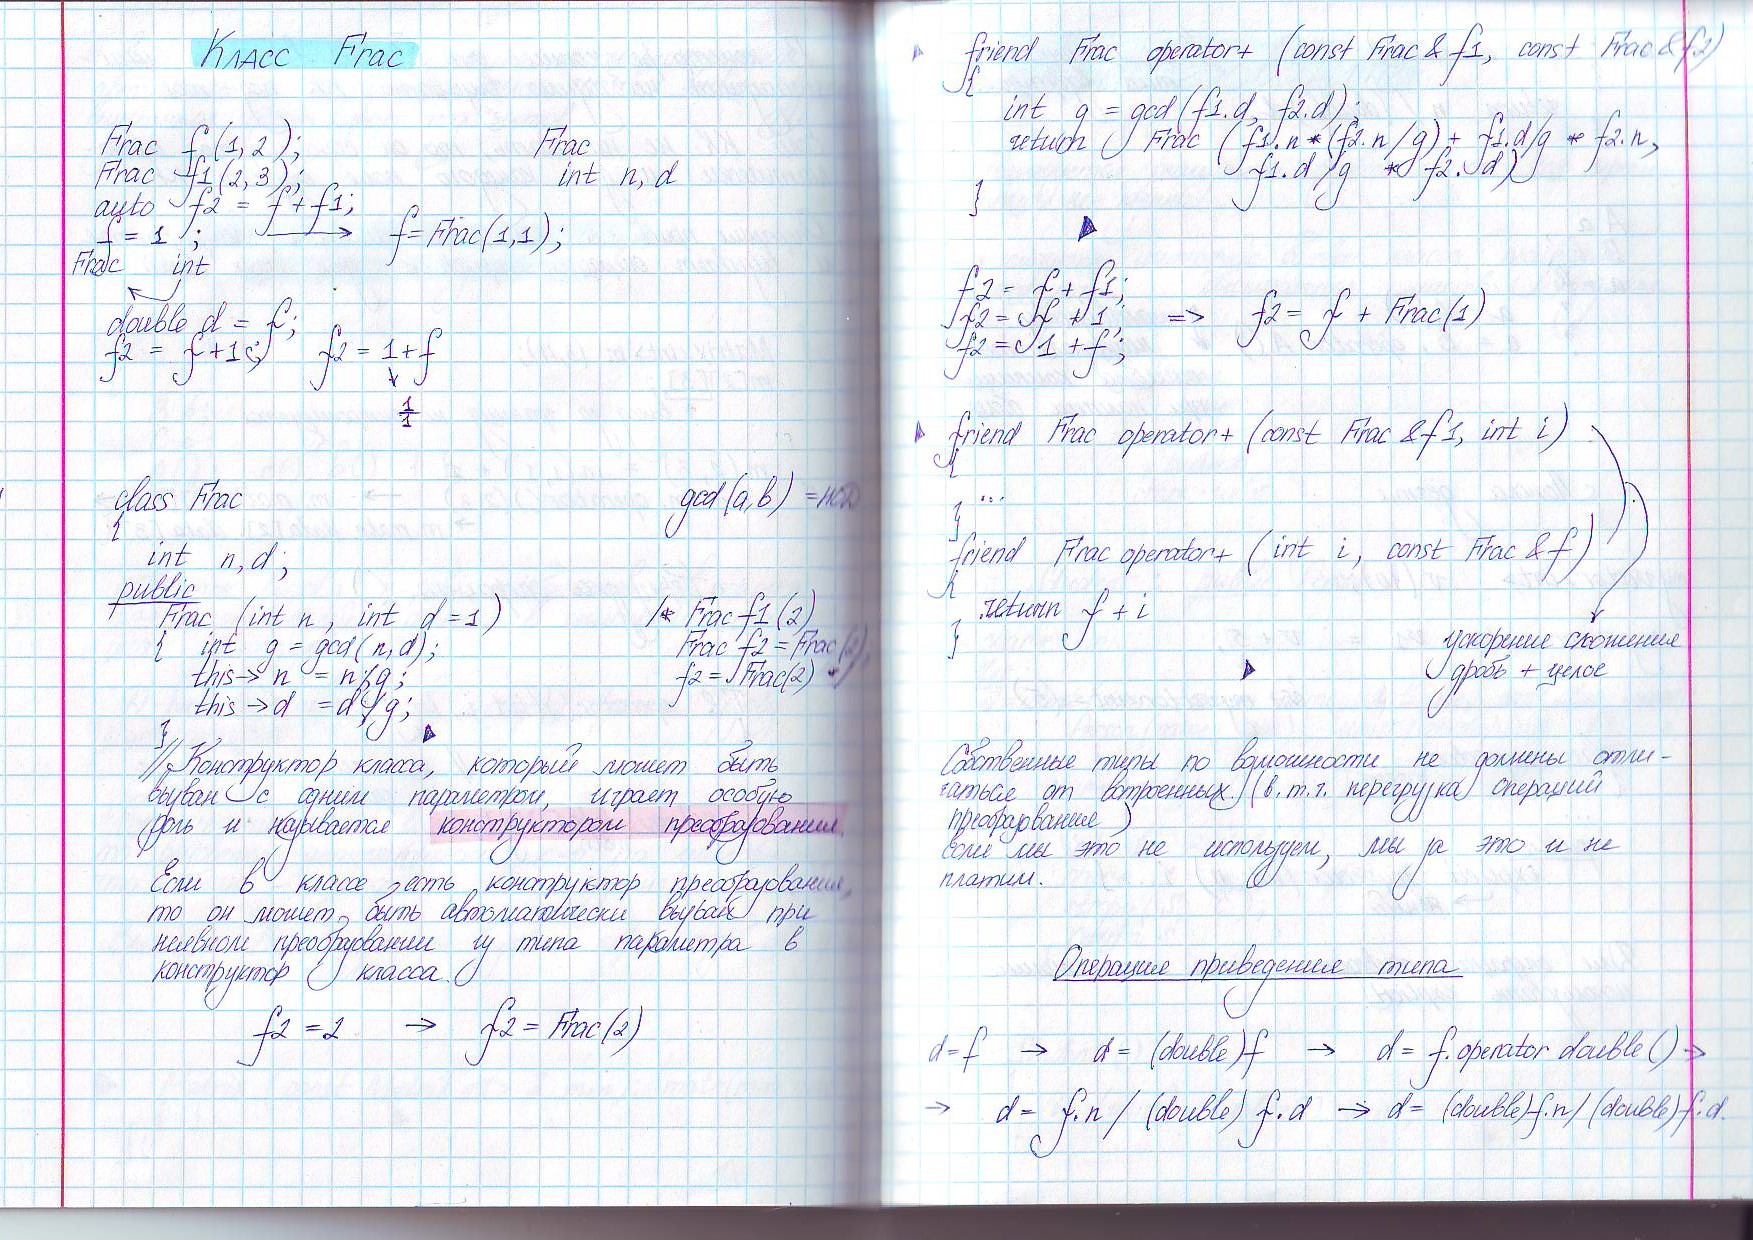 Класс Frac
Frac f(1,2);
Frac f1(2,3);
auto f2 = f+f1;
f = 1 ; → f=Frac(1,1);
Frac int
Frac
int n, d
double d = f;
f2 = f+1; f2 = 1+f
↓
1/1
class Frac
{
gcd(a,b) = НОД
int n,d;
public
Frac (int n, int d=1)
{ int g = gcd(n,d);
this→n = n/g;
this→d = d/g;
}
/* Frac f1(2)
Frac f2 = Frac(2);
f2 = Frac(2) */
// Конструктор класса, который может быть
вызван с одним параметром, играет особую
роль и называется конструктором преобразования
Если в классе есть конструктор преобразования,
то он может быть автоматически вызван при
неявном преобразовании из типа параметра в
конструктор класса.
f2 = 2 → f2 = Frac(2)
friend Frac operator+ (const Frac & f1, const Frac & f2)
{
int g = gcd(f1.d, f2.d);
return Frac (f1.n*(f2.n/g) + f1.d/g * f2.n,
f1.d/g * f2.d)
}
f2 = f + f1;
f2 = f + 1; => f2 = f + Frac(1)
f2 = 1 + f;
friend Frac operator+ (const Frac & f1, int i)
{
...
}
friend Frac operator+ (int i, const Frac & f)
{
return f + i
}
ускорение сложения
дробь + целое
Собственные типы по возможности не должны отли-
чаться от встроенных (в.т.ч. перегрузка операций
преобразования)
если мы это не используем, мы за это и не
платим.
Операция приведения типа
d=f → d = (double)f → d = f.operator double() →
→ d = f.n / (double) f.d → d = (double)f.n / (double)f.d.